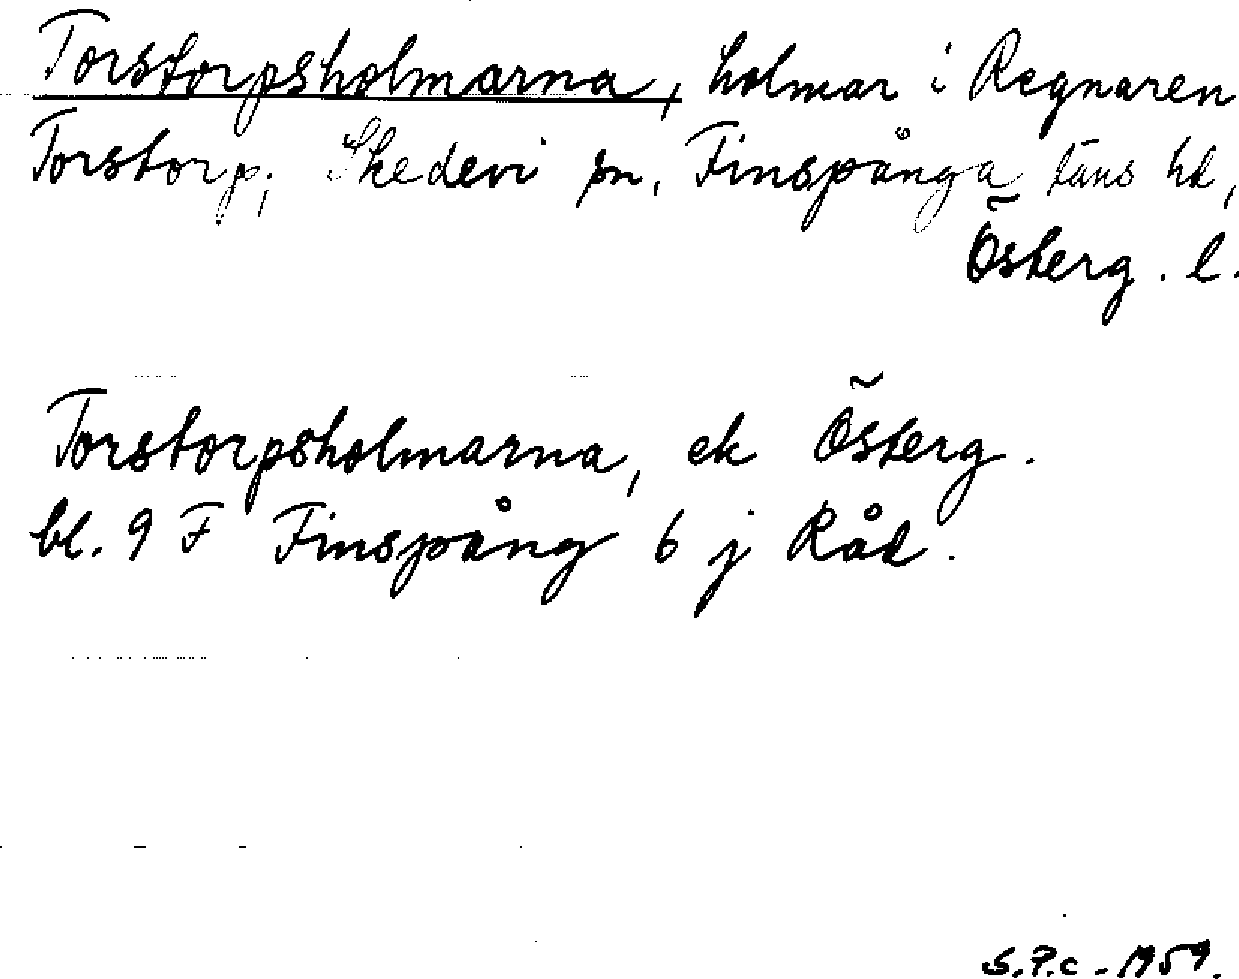 Torstorpsholmarna, holmar i Regnaren
Torstorp, Skedevi sn, Finspånga läns hd,
Österg. l.
Torstorpsholmarna, ek Österg.
bl. 9 F Finspång 6 j Råd.
S.P.c - 1959.